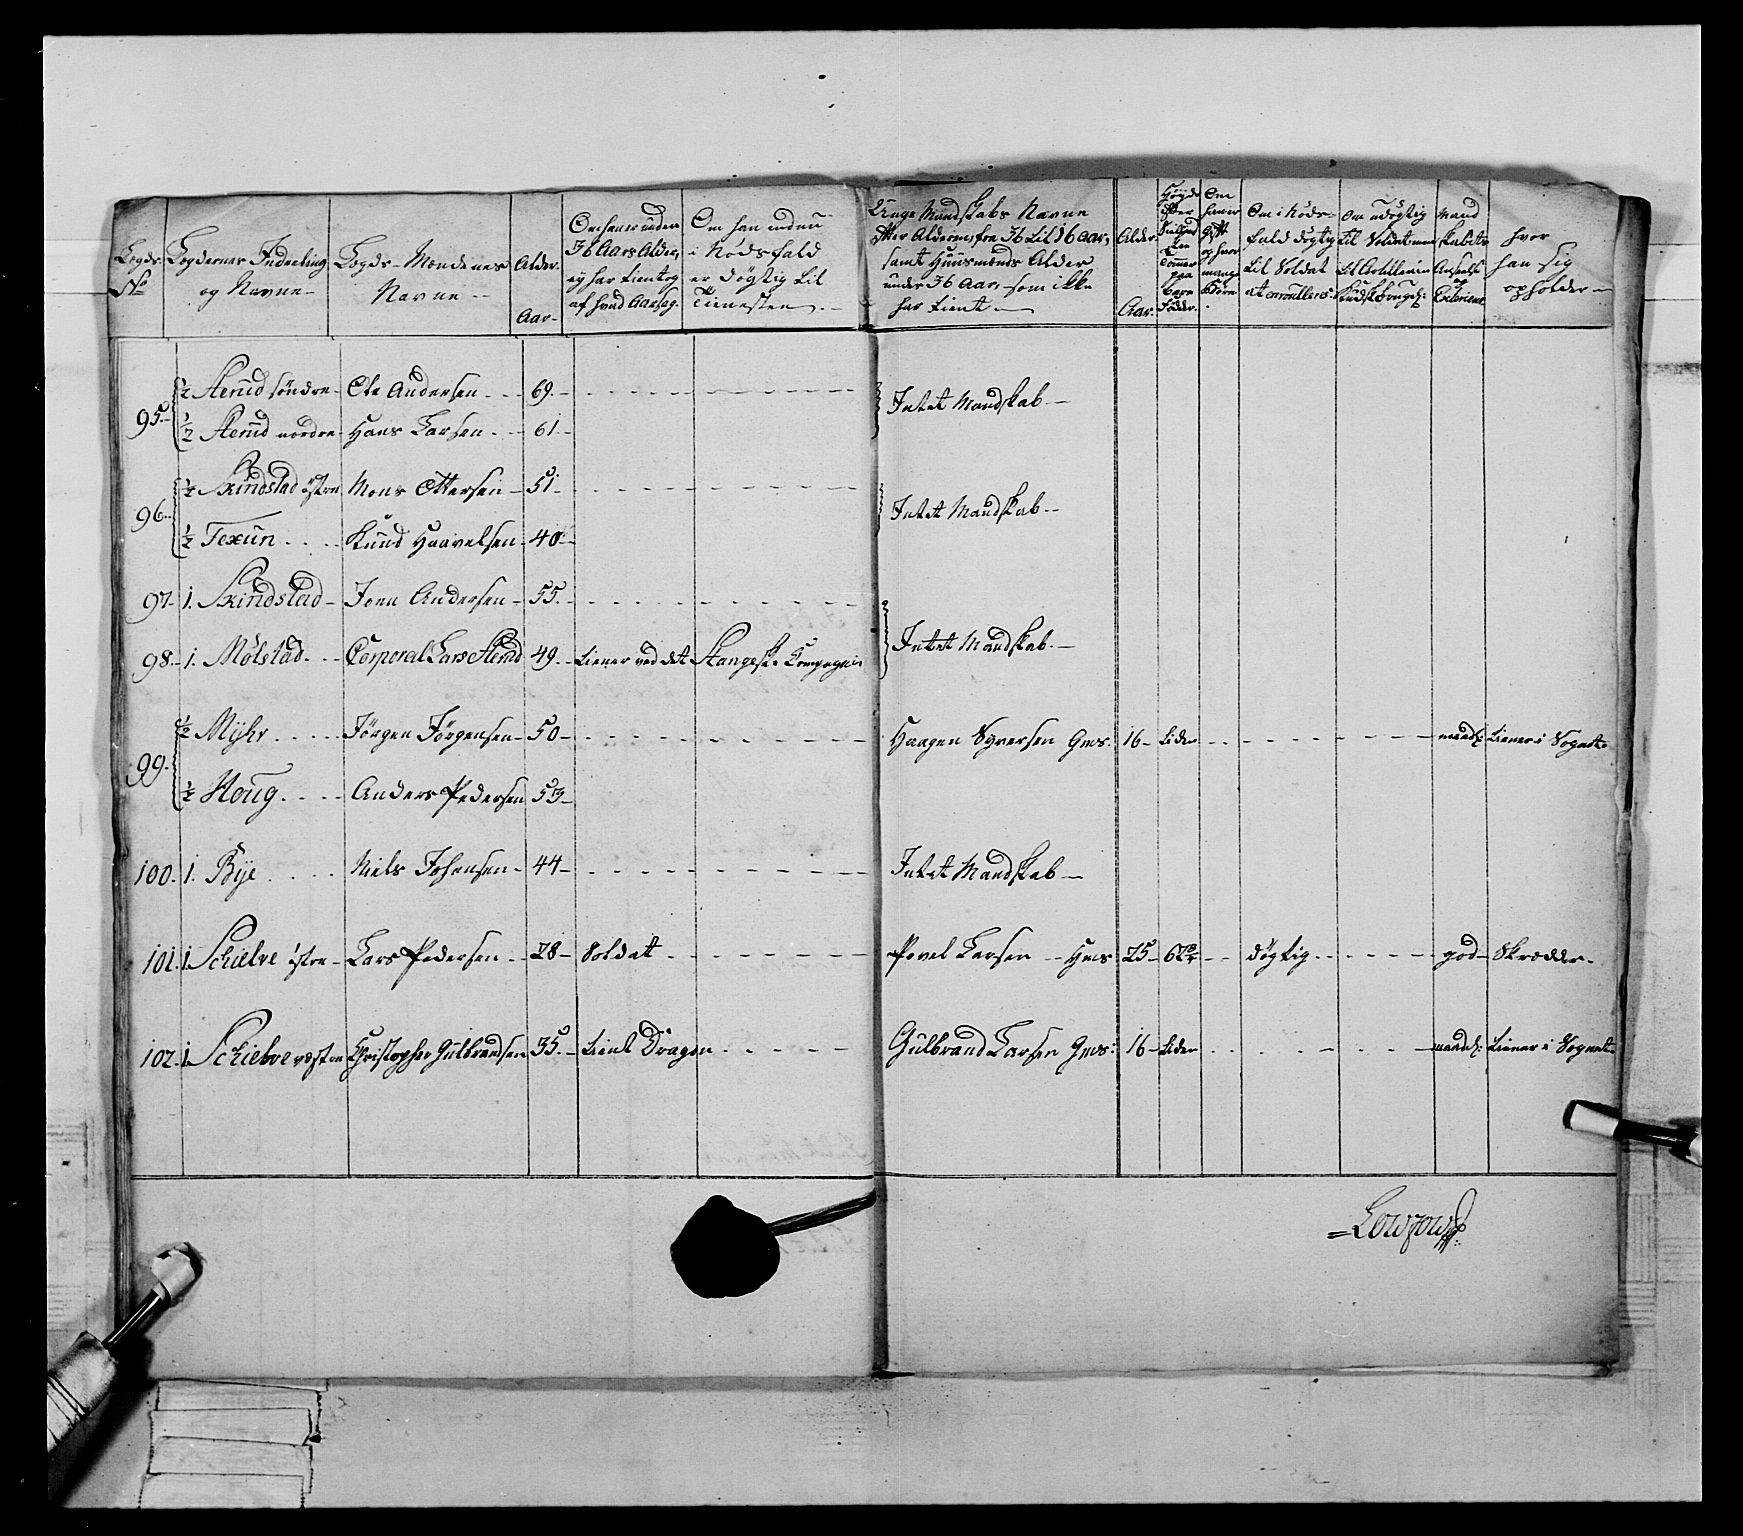 Lægds No
Lægdernes Inddeeling og Navne
Lægds-Mændenes Navne
Alder Aar
Om han er under 36 Aars Alder, ey har tient og af hvad Aarsag
Om han endnu i Nødsfald er døgtig til Tienesten
Unge Mandskabs Navne efter Alderen fra 36 til 16 aar, samt Huusmænds Alder under 36 Aar, som ikke har tient
Alder Aar
Om han er gift og hvor mange Børn
Om i Nøds-fald døgtig til Soldat
Om udøgtig til Soldat men til
Mand skabets
hvor han sig opholder
95. ½ Aerud søndre Ole Andersen 69 Intet Mandskab
½ Aerud nordre Hans Larsen 61
96. ½ Skindstad østre Mons Ottersen 51 Intet Mandskab
½ Texun Knud Haavelsen 40
97. 1. Skindstad Joen Andersen 55 Intet Mandskab
98. 1. Mølstad Corporal Lars Aerud 49 tiener ved det Stangeske Compagnie
99. ½ Myhr Jørgen Jørgensen 50 Haagen Syversen Gms: 16 liden maadl: tiener i Sognet
½ Houg Anders Pedersen 53
100. 1. Bye Niels Johansen 44 Intet Mandskab
101. 1. Schielve østre Lars Pedersen 28 Soldat Povel Larsen Hms 25 døgtig god Skrædder
102. 1. Schielve vestre Christopher Gulbrandsen 35 tient Dragon Gulbrand Larsen Gms: 16 liden maadl: tiener i Sognet
Lowzow